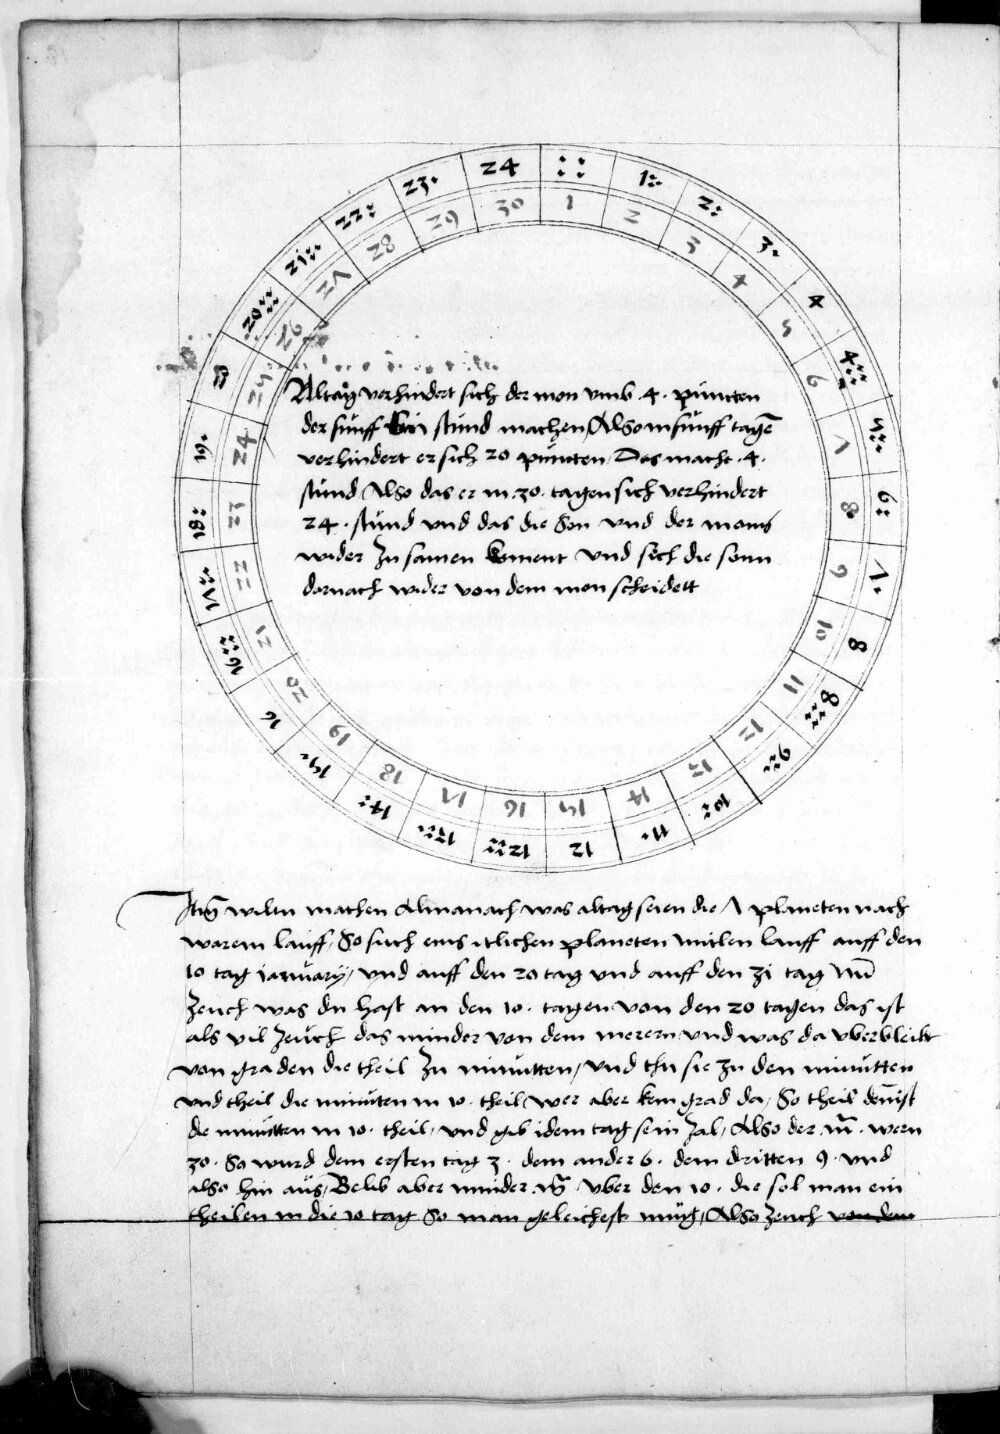 24
1
2
3
4
4
5
6
7
8
8
9
10
11
12
12
12
14
15
16
16
17
18
19
20
21
22
23
1
2
3
4
5
6
7
8
9
10
11
12
13
14
15
16
17
18
19
20
21
22
23
24
25
26
27
28
29
30
Altag verhindert sich der mon vmb .4. puncten
der funff ein stund machen Also in funff tagen
verhindert er sich 20 puncten Das macht .4.
stund Also das er in .30. tagen sich verhindert
24 . stund vnd das die Son vnd der mons
wider zu samen koment vnd sich die sonn
darnach wider von dem mon scheidett
wiltu machen Almanach was altag seien die 7 planeten nach
warem lauff / So such eins itlichen planeten mitlen lauff auff den
10 tag ianuary / vnd auff den 20 tag vnd auff den 31 tag nu
zeuch was du hast an den 10 . tagen von den 20 tagen das ist
als vil zeuch das minder von dem merern vnd was da vberbleibt
von graden die theil zu minutten / vnd thu sie zu den minutten
vnd theil die minuten in 10 . theil / wer aber kein grad da / So theil dennist
die minutten in 10 . theil / vnd gib idem tag sein zal / Also der m . wern
30 . So wurd dem ersten tag 3 . dem ander 6 . dem dritten 9 . vnd
also hin aus / Belib aber minder vber den 10 . die sol man ein
theilen in die 10 tag So man geleichest mug / Also zeuch von dem